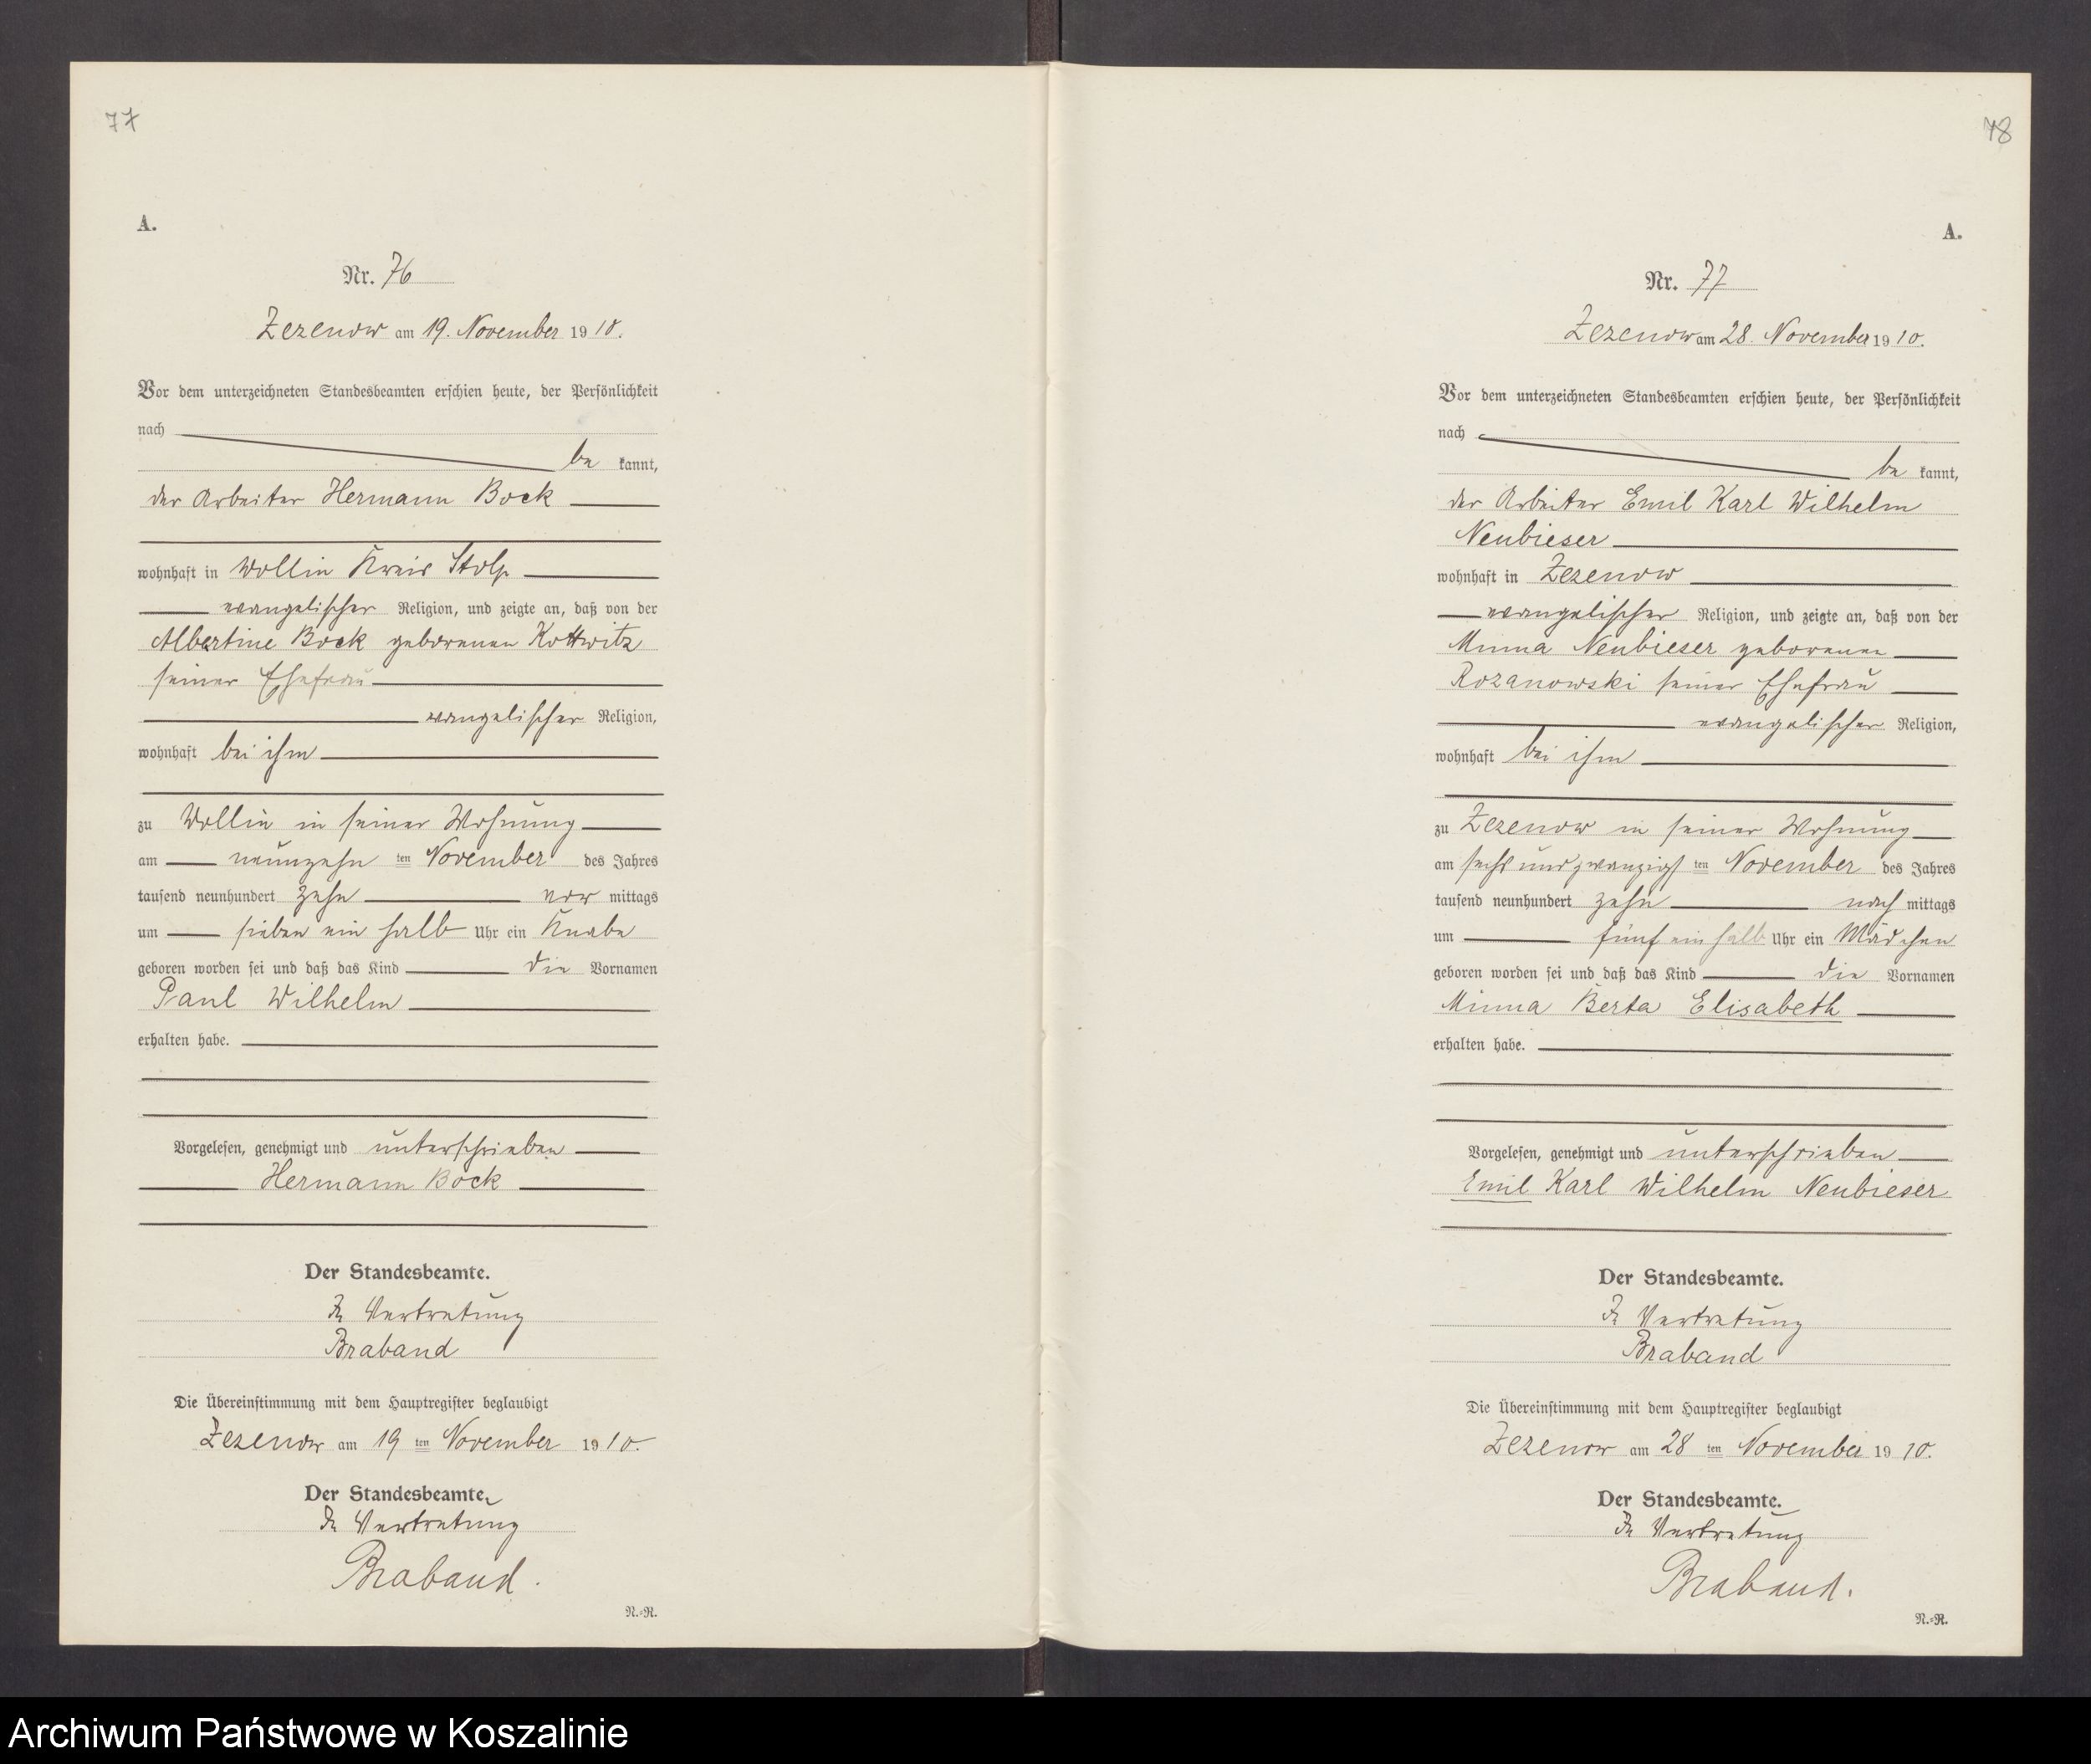 77
A.
Nr. 76
Zezenow am 19. November 1910.
Vor dem unterzeichneten Standesbeamten erschien heute, der Persönlichkeit
nach
be kannt,
der Arbeiter Hermann Bock
wohnhaft in Wollin Kreis Stolp
evangelischer Religion, und zeigte an, daß von der
Albertine Bock geborenen Kottwitz
seiner Ehefrau
evangelischer Religion,
wohnhaft bei ihm
zu Wollin in seiner Wohnung
am neunzehn ten November des Jahres
tausend neunhundert zehn vor mittags
um sieben ein halb Uhr ein Knabe
geboren worden sei und daß das Kind die Vornamen
Paul Wilhelm
erhalten habe.
Vorgelesen, genehmigt und unterschrieben
Hermann Bock
Der Standesbeamte.
In Vertretung
Braband
Die Übereinstimmung mit dem Hauptregister beglaubigt
Zezenow am 19 ten November 1910.
Der Standesbeamte.
In Vertretung
Braband.
N.-R.
78
A.
Nr. 77
Zezenow am 28. November 1910.
Vor dem unterzeichneten Standesbeamten erschien heute, der Persönlichkeit
nach
be kannt,
der Arbeiter Emil Karl Wilhelm
Neubieser
wohnhaft in Zezenow
evangelischer Religion, und zeigte an, daß von der
Minna Neubieser geborenen
Rozanowski seiner Ehefrau
evangelischer Religion,
wohnhaft bei ihm
zu Zezenow in seiner Wohnung
am sechs und zwanzigs ten November des Jahres
tausend neunhundert zehn nach mittags
um fünf ein halb Uhr ein Mädchen
geboren worden sei und daß das Kind die Vornamen
Minna Berta Elisabeth
erhalten habe.
Vorgelesen, genehmigt und unterschrieben
Emil Karl Wilhelm Neubieser
Der Standesbeamte.
In Vertretung
Braband
Die Übereinstimmung mit dem Hauptregister beglaubigt
Zezenow am 28 ten November 1910.
Der Standesbeamte.
In Vertretung
Braband.
N.-R.
Archiwum Państwowe w Koszalinie